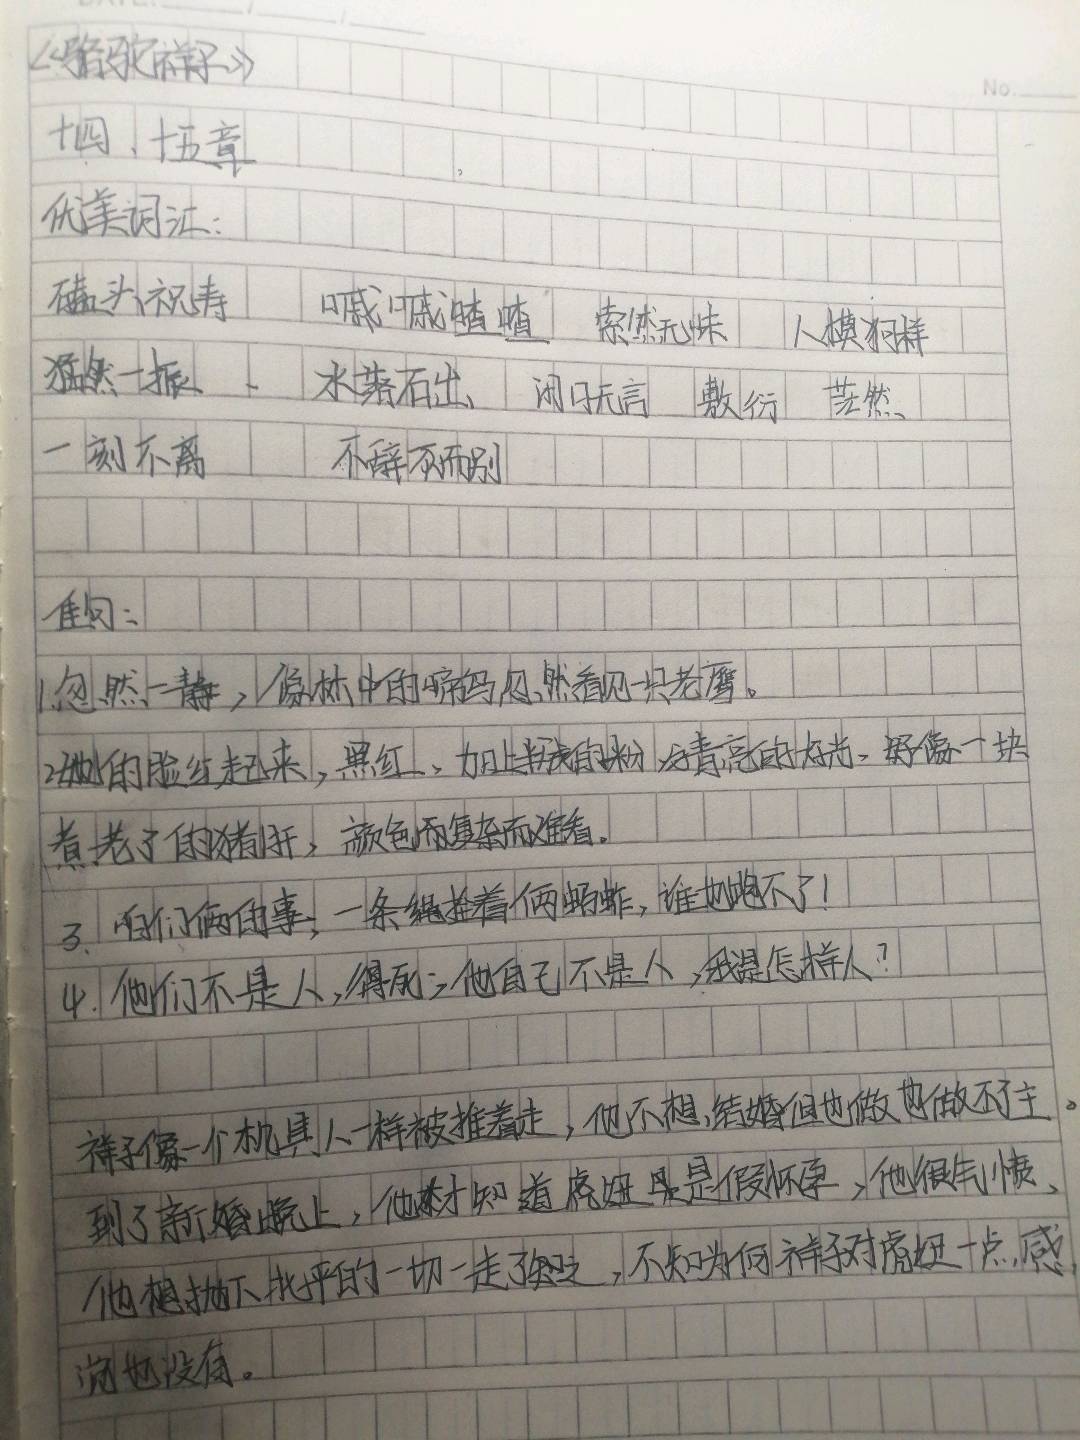 DATE: / /
No.
《骆驼祥子》
十四、十五章
优美词汇:
磕头祝寿 嘁嘁喳喳 索然无味 人模狗样
猛然一振 、 水落石出、 闭口无言 敷衍 茫然
一刻不离 不辞而别
佳句:
1.忽然一静,像林中的啼鸟忽然看见一只老鹰。
2.她的脸红起来,黑红、加上半残的粉与青亮的灯光、好像一块
煮老了的猪肝,颜色而复杂而难看。
3. 咱们俩的事,一条绳拴着俩蚂蚱,谁也跑不了!
4. 他们不是人,得死;他自己不是人,我是怎样人?
祥子像一个机具人一样被推着走,他不想结婚但也做也做不了主。
到了新婚晚上,他才知道虎妞是假怀孕,他很气愤、
他想抛下北平的一切一走了之,不知为何祥子对虎妞一点感
也没有。